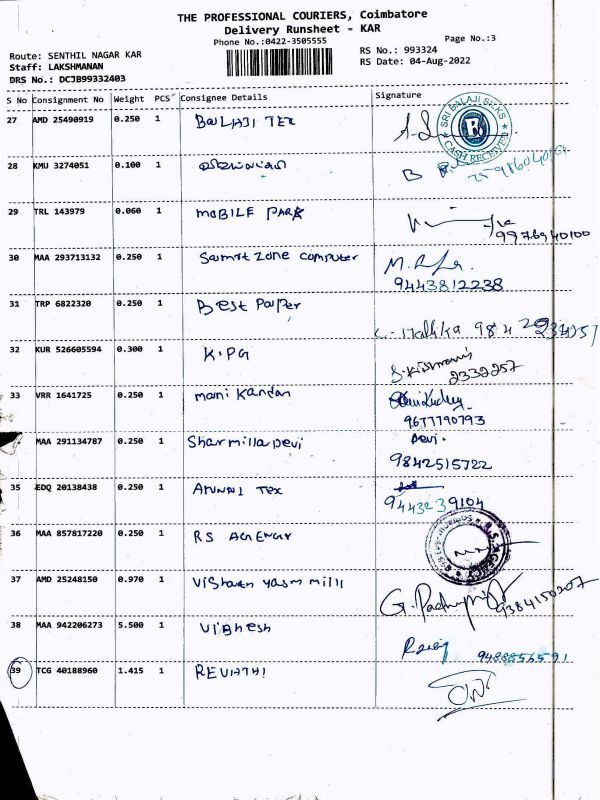 THE PROFESSIONAL COURIERS, Coimbatore
Delivery Runsheet - KAR
Phone No.:0422-3505555
Page No.:3
Route: SENTHIL NAGAR KAR
RS No.: 993324
Staff: LAKSHMANAN
RS Date: 04-Aug-2022
DRS No.: DCJB99332403
S No Consignment No Weight PCS Consignee Details Signature
27 AMD 25490919 0.250 1 BaLAJI TEX
SRI BALAJI SILKS CASH RECEIVED
28 KMU 3274051 0.100 1
29 TRL 143979 0.060 1 mOBILE PARK
9976940100
30 MAA 293713132 0.250 1 Samrt zone computer
9443812238
31 TRP 6822320 0.250 1 Best Paper
32 KUR 526605594 0.300 1 K.PG S.Krishnaveni
2332257
33 VRR 1641725 0.250 1 mani kandan
9677790793
MAA 291134787 0.250 1 Sharmilla Devi Devi.
9842515722
35 EDQ 20138438 0.250 1 ARUNAL Tex
9443239104
36 MAA 857817220 0.250 1 RS AGENCY
37 AMD 25248150 0.970 1 Vishaen yasm mill
9384150207
38 MAA 942206273 5.500 1 VIBHesh
9488856591
39 TCG 40188960 1.415 1 REVATHI